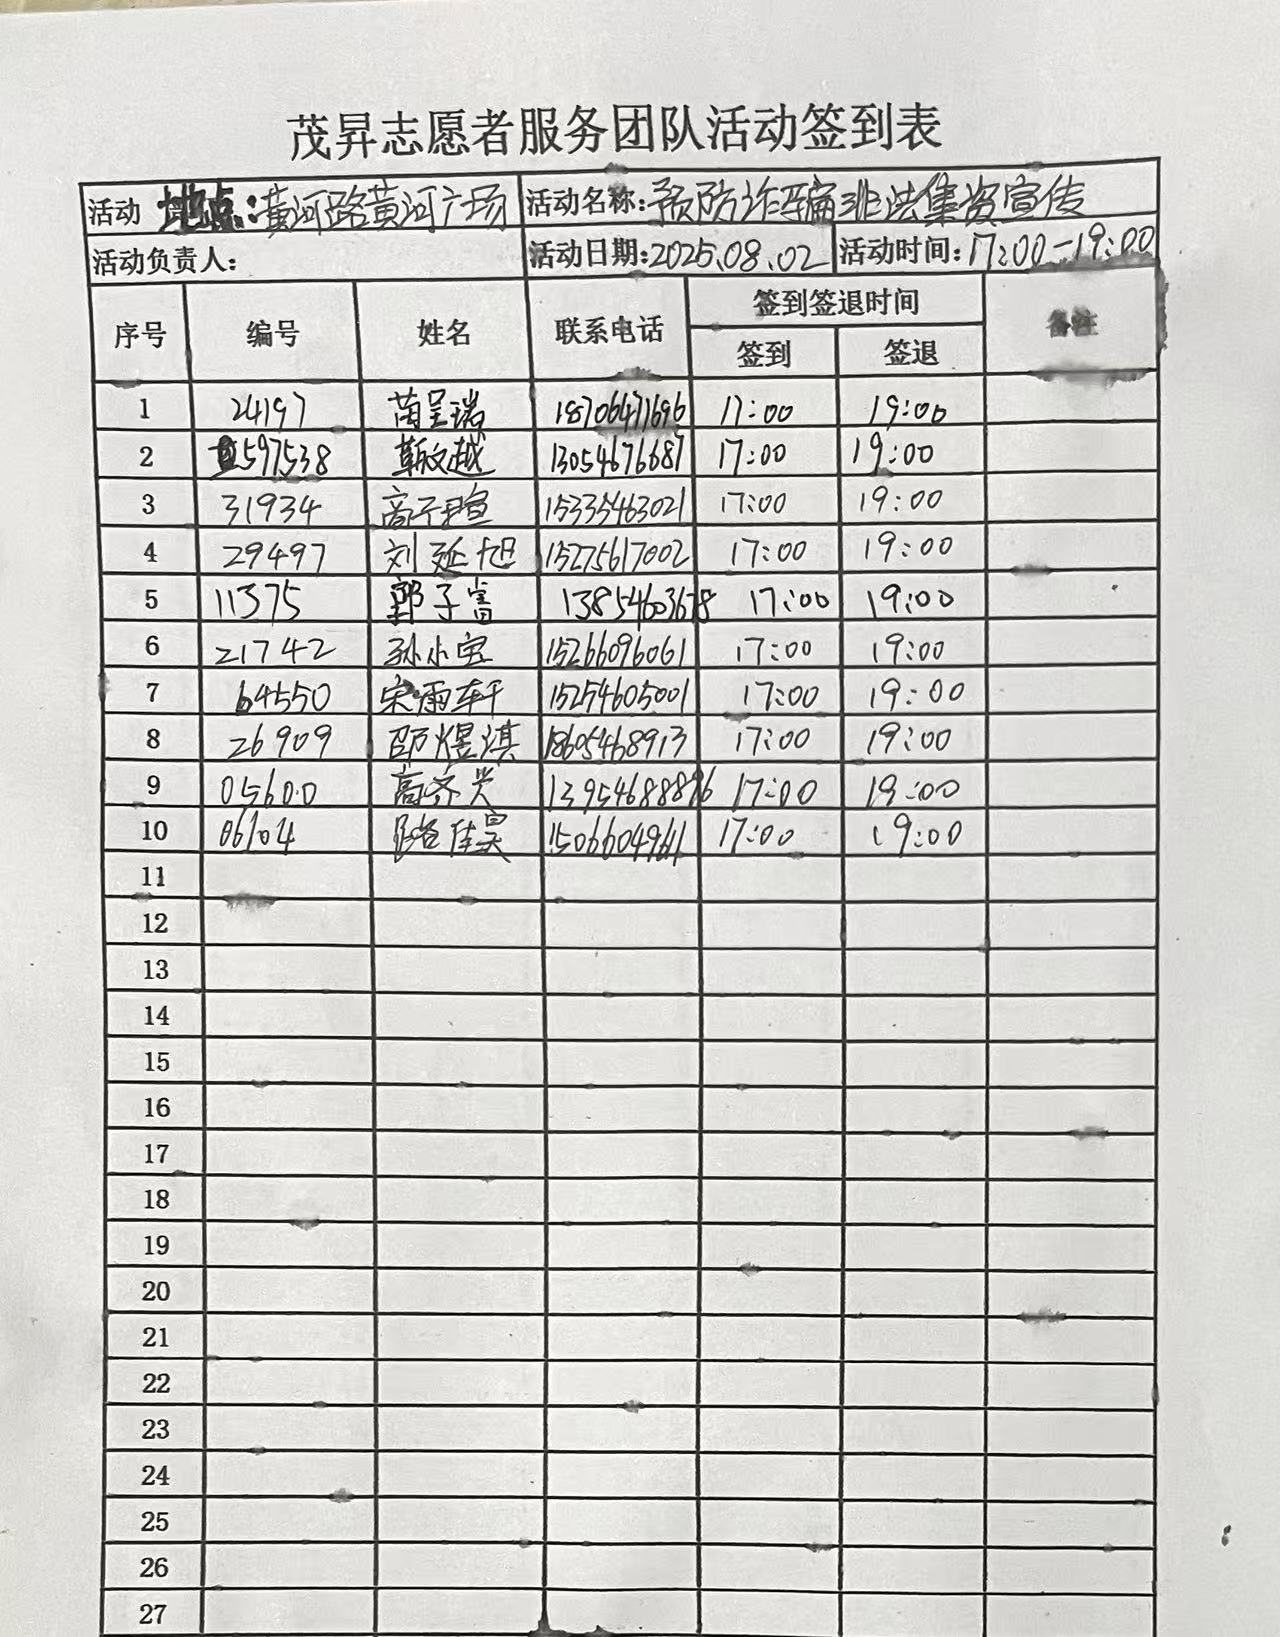 茂昇志愿者服务团队活动签到表
活动地点:黄河路黄河广场 活动名称:预防诈骗非法集资宣传
活动负责人: 活动日期:2025.08.02 活动时间:17:00-19:00
序号 编号 姓名 联系电话 签到签退时间 备注
签到 签退
1 24197 呈瑞 18706471696 17:00 19:00
2 597538 靳文越 13054676687 17:00 19:00
3 31934 商子瑄 15335463021 17:00 19:00
4 29497 刘延旭 15275617002 17:00 19:00
5 11375 郭子富 13854603678 17:00 19:00
6 21742 孙小宝 15266096061 17:00 19:00
7 64550 宋雨轩 15254605001 17:00 19:00
8 26909 邵煜淇 18605468913 17:00 19:00
9 05600 高齐兴 17:00 19:00
10 06104 路佳昊 17:00 19:00
11
12
13
14
15
16
17
18
19
20
21
22
23
24
25
26
27